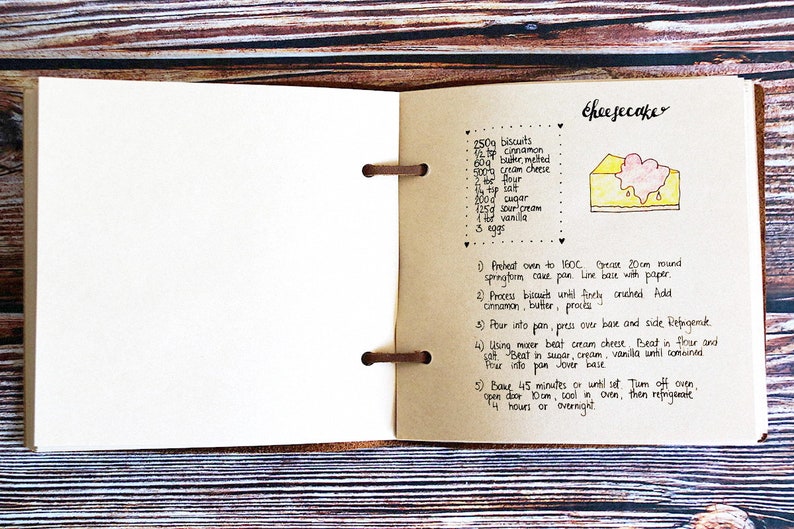 cheesecake
250g biscuits
1/2 tsp cinnamon
60g butter, melted
500g cream cheese
2 tbs flour
1/4 tsp salt
200g sugar
125g sour cream
1 tbs vanilla
3 eggs
1) Preheat oven to 160C. Grease 20cm round
springform cake pan. Line base with paper.
2) Process biscuits until finely crushed. Add
cinnamon, butter, process
3) Pour into pan, press over base and side. Refrigerate.
4) Using mixer beat cream cheese. Beat in flour and
salt. Beat in sugar, cream, vanilla until combined.
Pour into pan over base.
5) Bake 45 minutes or until set. Turn off oven,
open door 10cm, cool in oven, then refrigerate
4 hours or overnight.